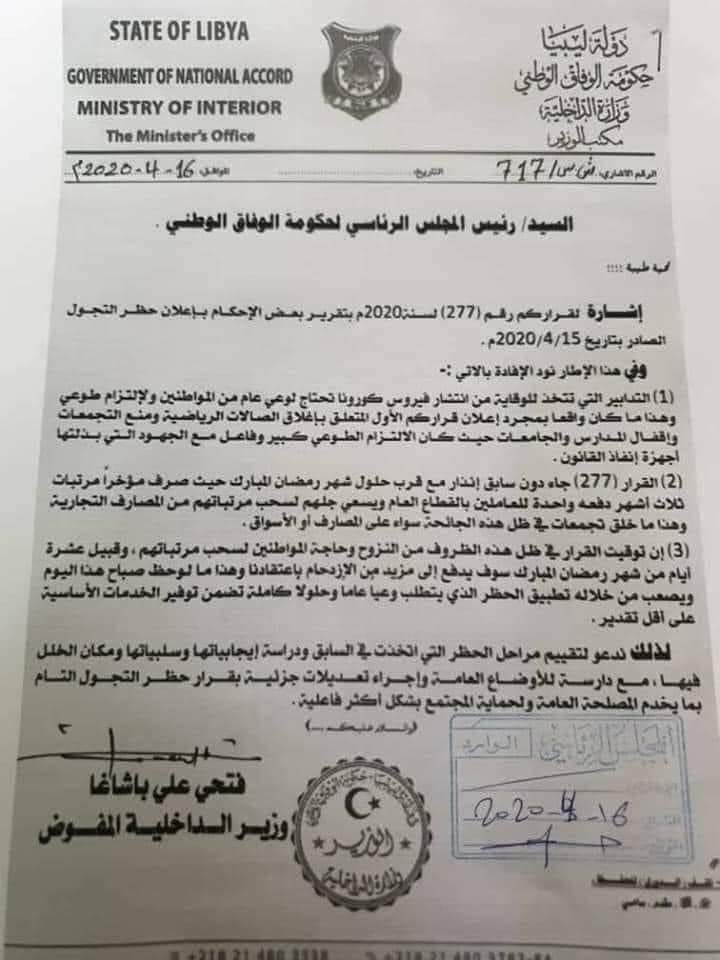 STATE OF LIBYA
GOVERNMENT OF NATIONAL ACCORD
MINISTRY OF INTERIOR
The Minister's Office
دولة ليبيا
حكومة الوفاق الوطني
وزارة الداخلية
مكتب الوزير
الرقم الاشاري: 717/ التاريخ: الموافق: 16-4-2020م
السيد/ رئيس المجلس الرئاسي لحكومة الوفاق الوطني .
تحية طيبة !!!!
إشارة لقراركم رقم (277) لسنة2020م بتقرير بعض الإحكام بإعلان حظر التجول
الصادر بتاريخ 2020/4/15م .
وفي هذا الإطار نود الإفادة بالاتي :-
(1) التدابير التي تتخذ للوقاية من انتشار فيروس كورونا تحتاج لوعي عام من المواطنين ولإلتزام طوعي
وهذا ما كان واقعا بمجرد إعلان قراركم الأول المتعلق بإغلاق الصالات الرياضية ومنع التجمعات
وإقفال المدارس والجامعات حيث كان الالتزام الطوعي كبير وفاعل مع الجهود التي بذلتها
أجهزة إنفاذ القانون .
(2) القرار (277) جاء دون سابق إنذار مع قرب حلول شهر رمضان المبارك حيث صرف مؤخراً مرتبات
ثلاث أشهر دفعه واحدة للعاملين بالقطاع العام ويسعي جلهم لسحب مرتباتهم من المصارف التجارية
وهذا ما خلق تجمعات في ظل هذه الجائحة سواء على المصارف أو الأسواق .
(3) إن توقيت القرار في ظل هذه الظروف من النزوح وحاجة المواطنين لسحب مرتباتهم ، وقبيل عشرة
أيام من شهر رمضان المبارك سوف يدفع إلى مزيد من الإزدحام بأعتقادنا وهذا ما لوحظ صباح هذا اليوم
ويصعب من خلاله تطبيق الحظر الذي يتطلب وعيا عاما وحلولا كاملة تضمن توفير الخدمات الأساسية
على أقل تقدير .
لذلك ندعو لتقييم مراحل الحظر التي اتخذت في السابق ودراسة إيجابياتها وسلبياتها ومكان الخلل
فيها ، مع دارسة للأوضاع العامة وإجراء تعديلات جزئية بقرار حظر التجول التام
بما يخدم المصلحة العامة ولحماية المجتمع بشكل أكثر فاعلية .
(والسلام عليكم ...)
فتحي علي باشاغا
وزير الداخلية المفوض
الوزير
وزارة الداخلية
المجلس الرئاسي
الوارد
2020-4-16